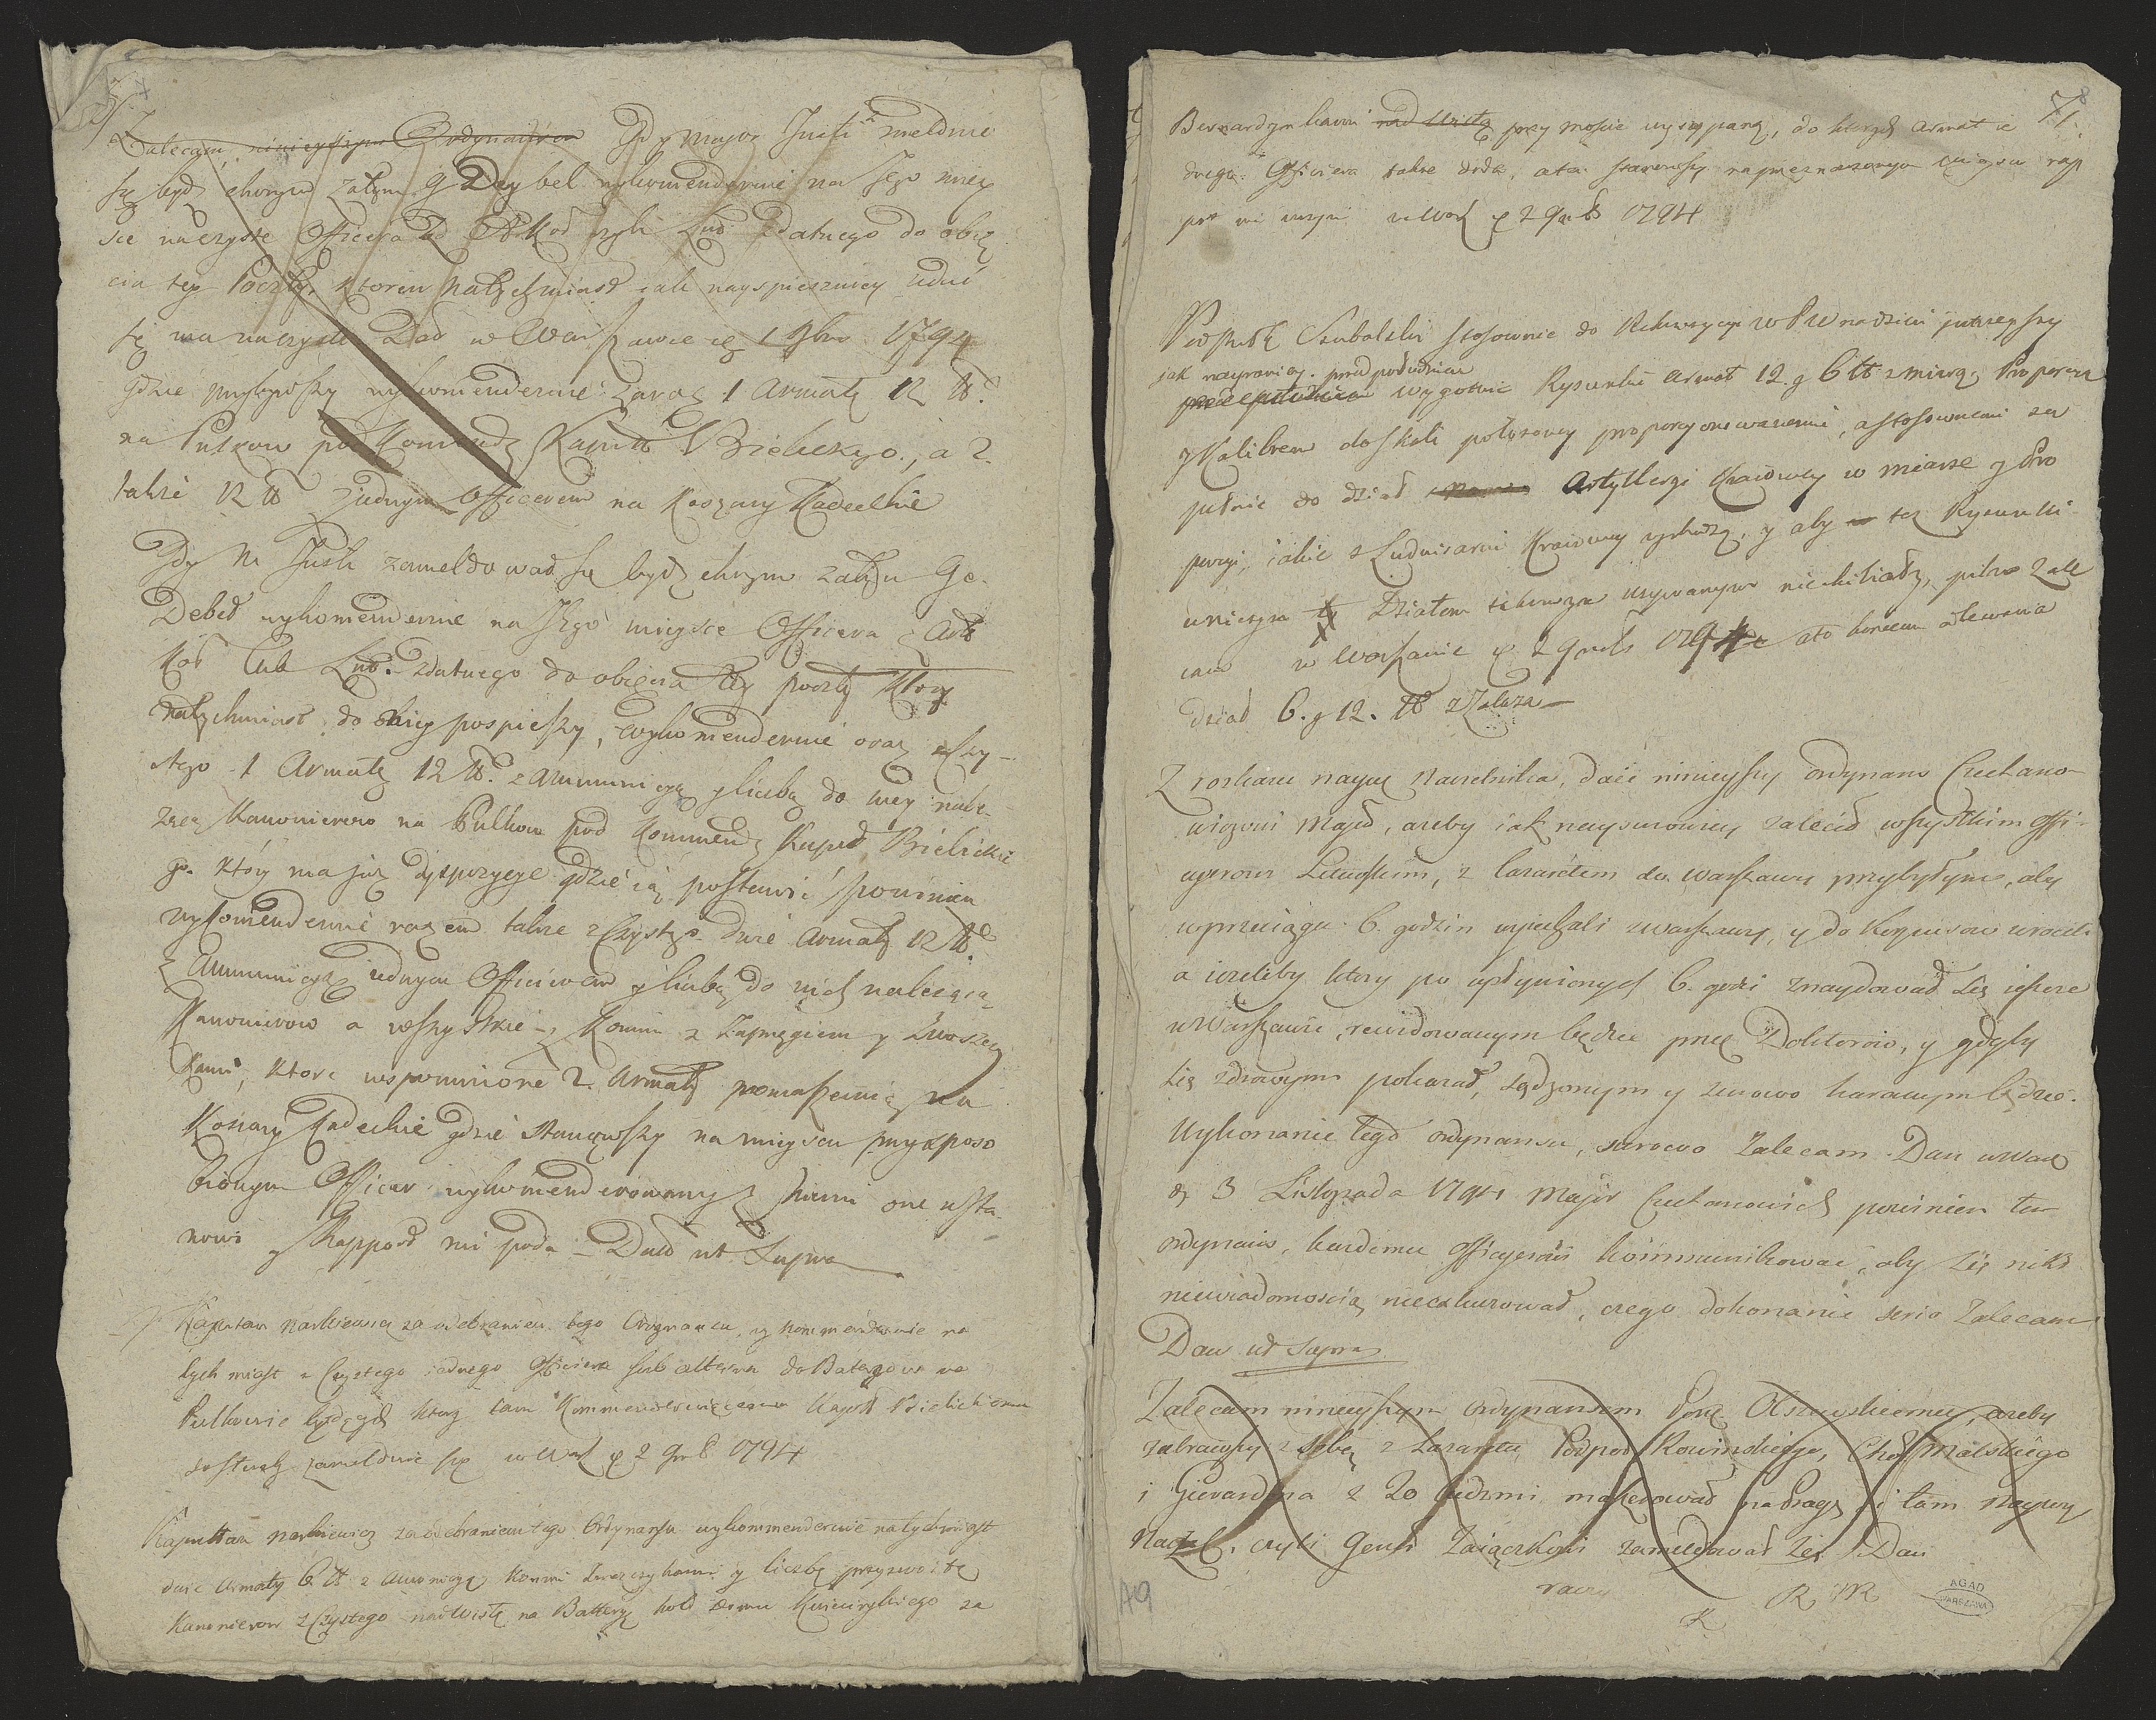 Zalecam, ninieyszym Ordynansem Gdy Major Justi melduie
się bydź chorym zatym G Deybel wykomenderuie na Jego miey
sce na czyste Officera od Art Kor zdatnego do obię
cia tey Poczty, ktoren natychmiast jak nayspieszniey udać
się ma na czyste Dat w Warszawie 1 9bra 1794
gdzie przybywszy wykomenderuie zaraz 1 Armatę 12 ℔
na Pulkow pod Komendą Kapit Bielickiego, a 2
także 12 ℔ z jednym Officerem na Koszary Kadeckie
Gdy M Justi zameldował się bydź chorym zatym Ge.
Debel wykomenderuie na Jego mieysce Officera z Art
Kor Lub Lit. zdatnego do obięcia tey poczty Ktory
natychmiast do niey pospieszy, wykomenderuie oraz z Czy-
stego 1 Armatę 12 ℔. z ammunicyą y liczbą do niey nale-
żącą Kanonierow na Pulkow pod Kommendę Kapit Bielickie
go. który ma już dyspozycye gdzie ią postawić powinien
wykomenderuie razem także z Czystego dwie Armaty 12 ℔
z Ammunicyą jednym Officierem y liczbą do nich należącą
Kanonierow a wszystkie z Końmi z Zaprzęgiem y Zwoszczy
kami, ktore wspomnione 2 Armaty pomaszeruią na
Koszary Kadeckie gdzie stanąwszy na mieyscu przysposo
bionym Officer wykomenderowany z niemi one usta-
nowi y Rapport mi poda – Datt ut Supra
Kapitan Narkiewicz za odebraniem tego Ordynansu, wykommenderuie na
tychmiast z Czystego iednego Officiera subalterna do Bateryow na
Pulkowie będących ktory tam Kommenderuiącemu Kapitt Bielickiemu
do służby zamelduie się w War d 2 9brb 1794
Kapittan Narkiewicz za odebraniem tego Ordynansu wykommenderuie natychmiast
dwie Armaty 6 ℔ z Amunicyą Końmi Zwoszczykami y liczbą przyzwoitą
Kanonierow z Czystego nad Wisłę na Batteryę koło domu Kwiecińskiego za
Bernardynkami nad Wisłą przy moście wysypaną, do ktorych armat ie
dnego Officiera także doda, a ten stanowszy na przeznaczonym mieyscu rap
port mi uczyni w War d 2 9brb 1794
Podpułk Czubalski stosownie do Rekwizycyi w Prenadzień jutrzeyszy
jak nayraniey. przed południem
przed południem wygotuie Rysunki Armat 12. y 6 ℔ z miarą Proporcii
y Kalibrem do skali połozoney proporcyonowanemi, a stosownemi zu
pełnie do dział Artylleryi Kraiowey w miarze y Pro
porcyi, iakie z Ludwisarni Kraiowey wychodzą, y aby te Rysunki
w niczym Działom teraz używanym nie chibiały, pilno zale
cam w Warszawie d 2 9brb 1794 a to koncem odlewania
dział 6. y 12. ℔ z Żelaza –
Z rozkazu nayw Naczelnika, daie ninieyszy ordynans Ciechano-
wiczowi Major, ażeby iak nayśurowiey zalecił wszystkim offi-
cyerom Litewskim, z lazaretem do Warszawy przybyłym, aby
w przeciągu 6. godzin wyiechali z Warszawy, y do korpusow wrocili
a ieżeliby ktory po upłynionych 6. godzi znaydował się ieszcze
w Warszawie, rewidowanym będzie przez Doktorow, y gdyby
się zdrowym pokazał, sądzonym y surowo karanym będzie.
Wykonanie tego ordynansu, surowo zalecam. Dan w War
d 3 Listopada 1794 Major Ciechanowicz powinien ten
ordynans, każdemu officyerowi kommunikować, aby się nikt
niewiadomością nieexkuzował, czego dokonanie serio zalecam
Dan ut Supra
Zalecam ninieyszym Ordynansem Poruc Olszewskiemu, ażeby
zabrawszy z sobą z Lazaretu Podpor Kowinskiego, Chor Malskiego
i Gierardyna z 20 ludzmi maszerował na Pragę i tam Naywy
Nacz. czyli Genł Zaiączkowi zameldował się Dan
raczy
R M
K
AGAD
WARSZAWA
7
8